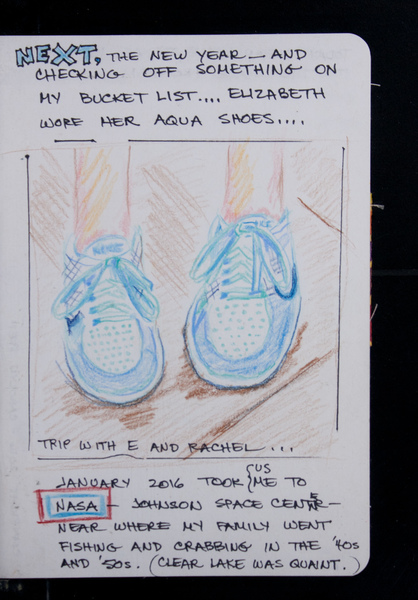 NEXT, THE NEW YEAR — AND
CHECKING OFF SOMETHING ON
MY BUCKET LIST.... ELIZABETH
WORE HER AQUA SHOES....
TRIP WITH E AND RACHEL...
JANUARY 2016 TOOK {US ME TO
NASA - JOHNSON SPACE CENTER -
NEAR WHERE MY FAMILY WENT
FISHING AND CRABBING IN THE '40s
AND '50s. (CLEAR LAKE WAS QUAINT.)